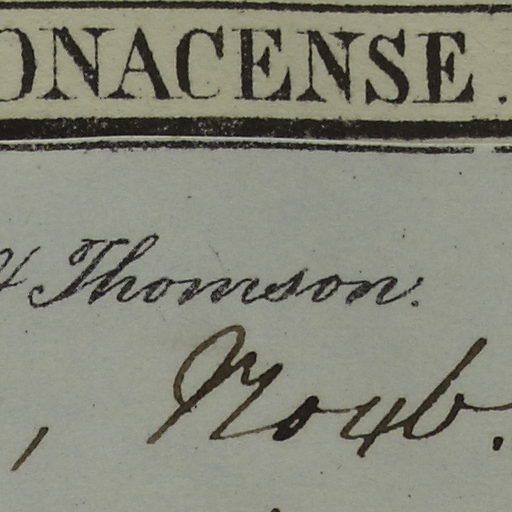 ONACENSE.
& Thomson.
, Roxb.